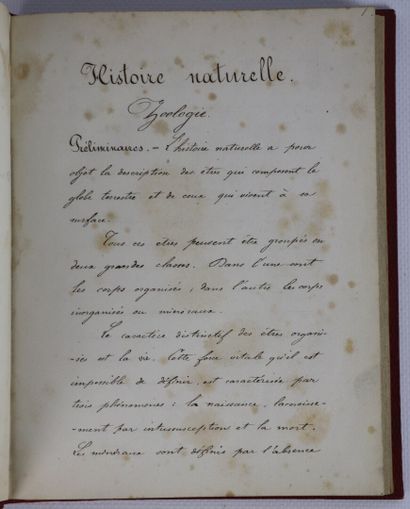 1
Histoire naturelle.
Zoologie.
Préliminaires. - L'histoire naturelle a pour
objet la description des êtres qui composent le
globe terrestre et de ceux qui vivent à sa
surface.
Tous ces êtres peuvent être groupés en
deux grandes classes. Dans l'une sont
les corps organisés ; dans l'autre les corps
inorganisés ou minéraux.
Le caractère distinctif des êtres organi-
-sés est la vie. Cette force vitale qu'il est
impossible de définir, est caractérisée par
trois phénomènes : la naissance, l'accroisse-
-ment par intussusception et la mort.
Les minéraux sont définis par l'absence